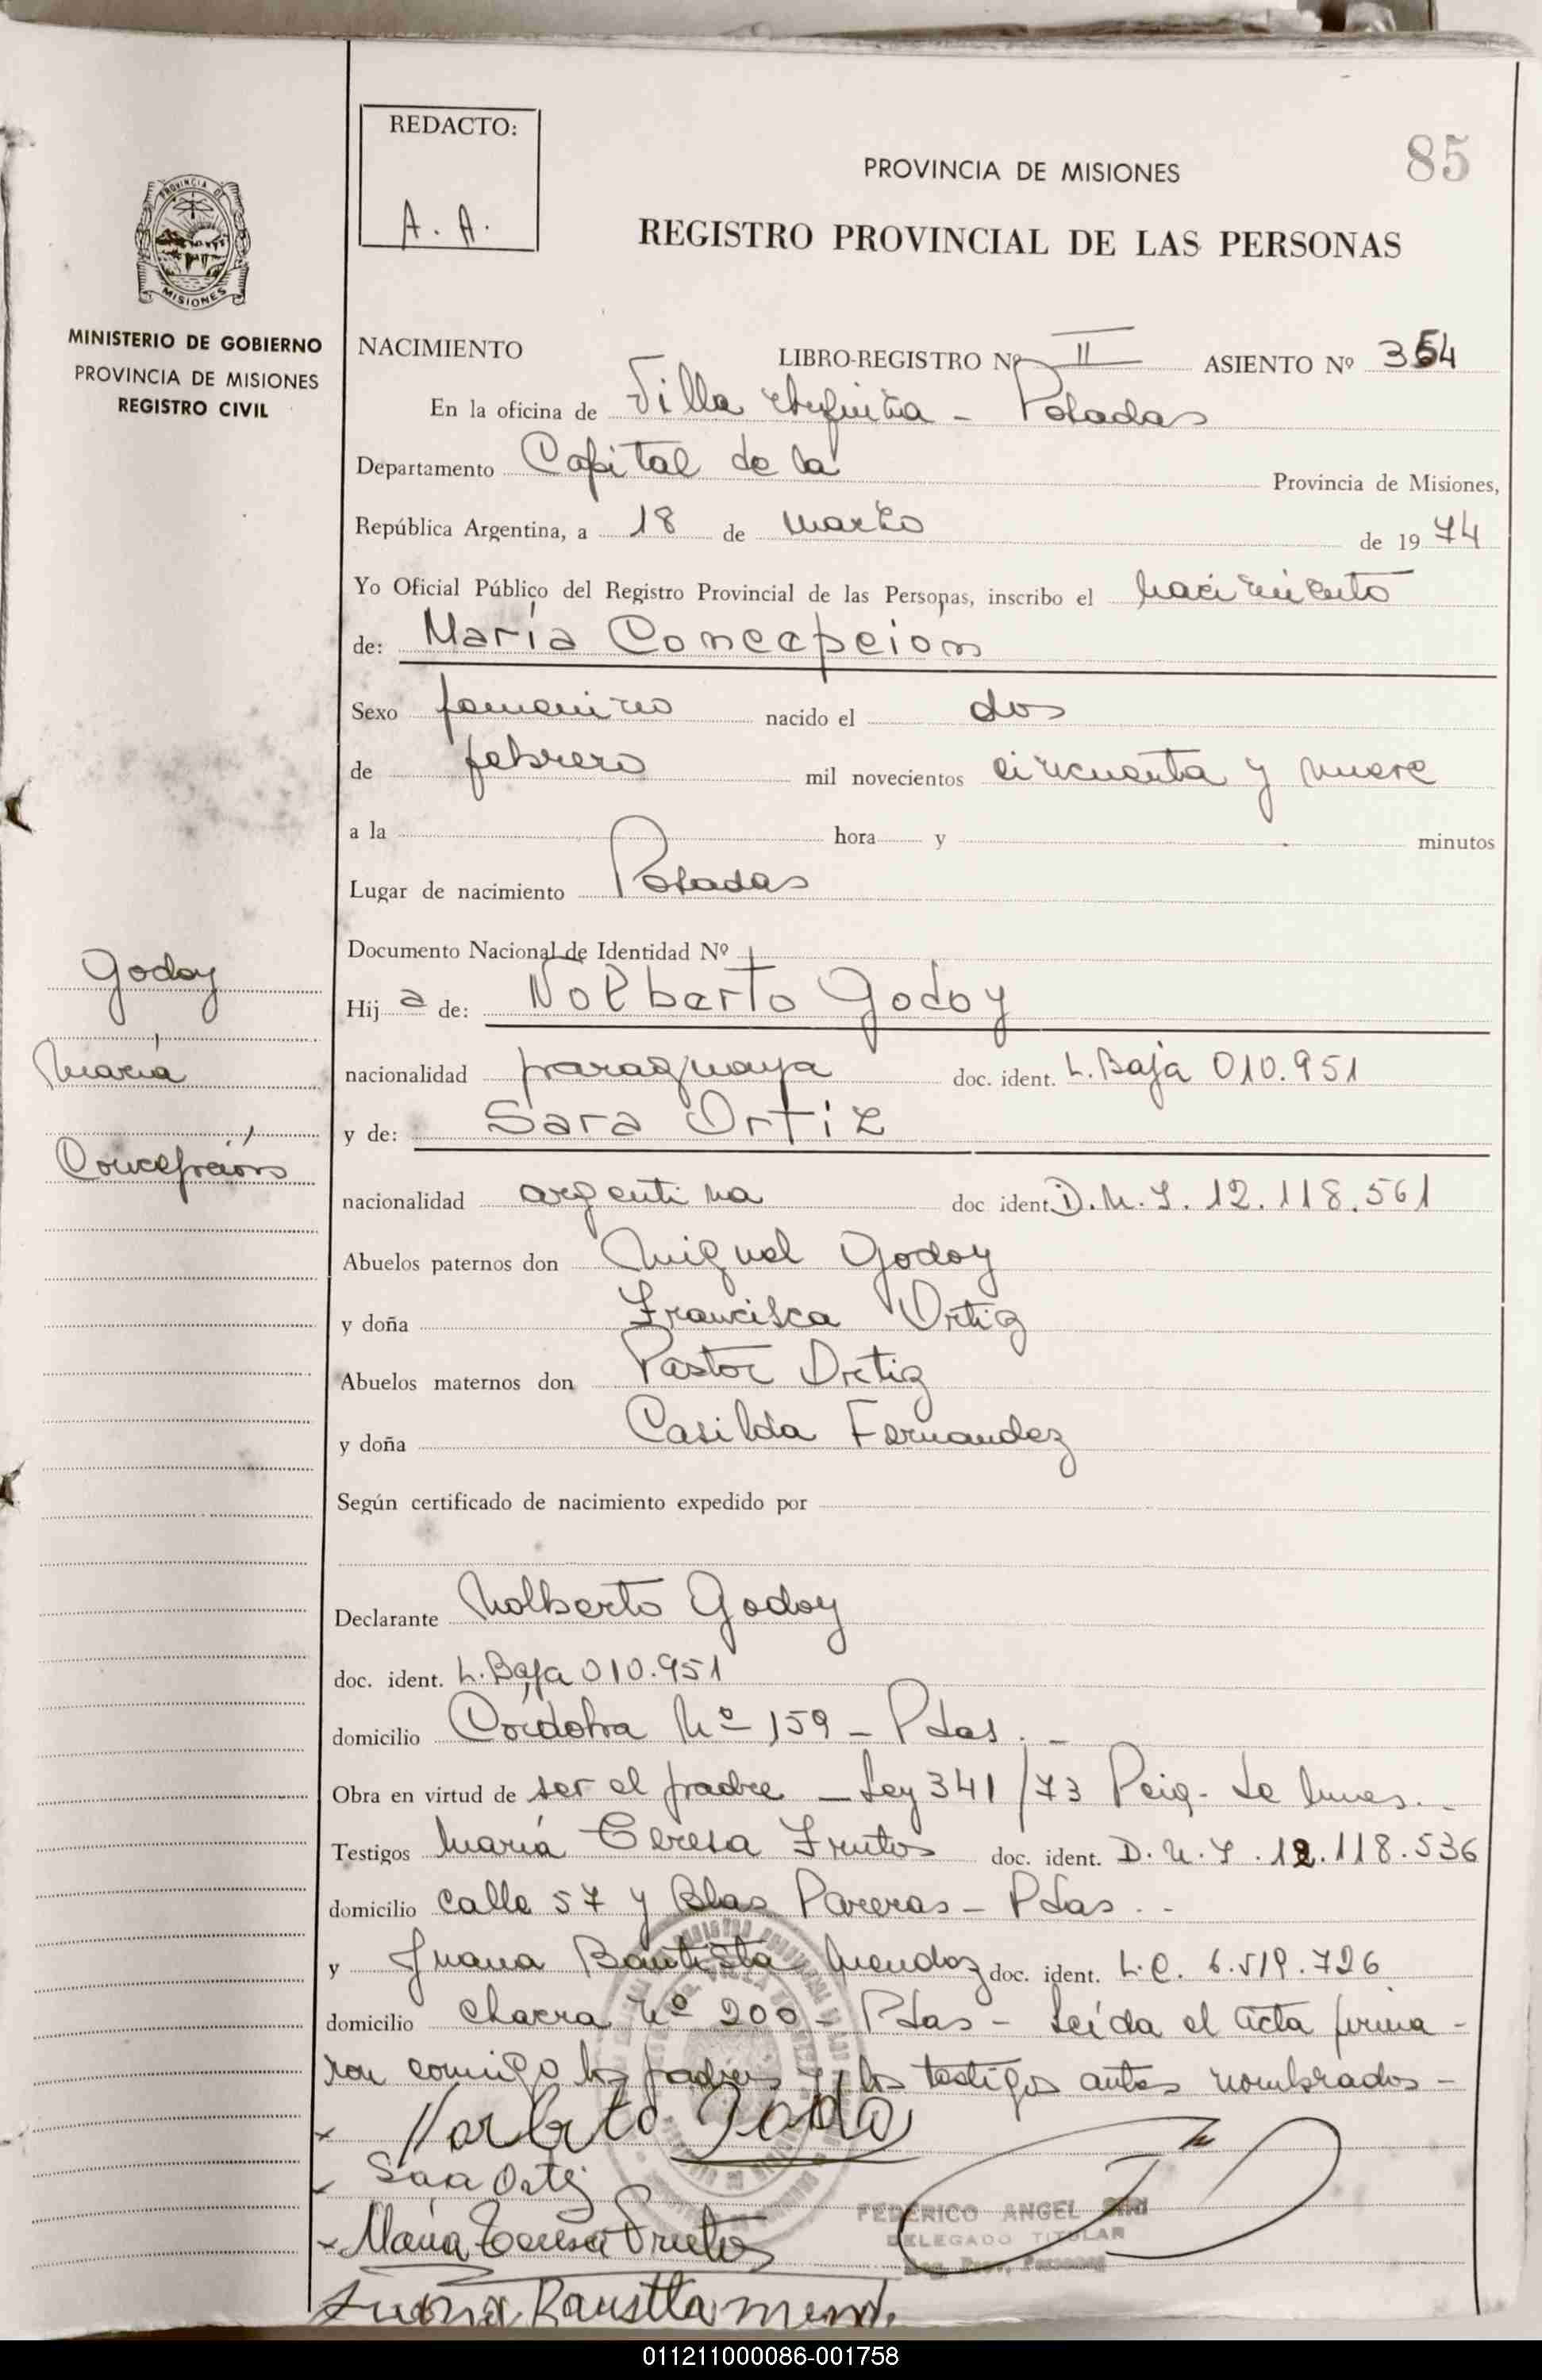 REDACTO:
A. A.
85
PROVINCIA DE MISIONES
REGISTRO PROVINCIAL DE LAS PERSONAS
PROVINCIA DE
MISIONES
MINISTERIO DE GOBIERNO
PROVINCIA DE MISIONES
REGISTRO CIVIL
NACIMIENTO LIBRO-REGISTRO Nº II ASIENTO Nº 354
En la oficina de Villa - Posadas
Departamento Capital de la Provincia de Misiones,
República Argentina, a 18 de marzo de 1974
Yo Oficial Público del Registro Provincial de las Personas, inscribo el nacimiento
de: María Concepcion
Sexo femenino nacido el dos
de febrero mil novecientos cincuenta y nueve
a la hora y minutos
Lugar de nacimiento Posadas
Documento Nacional de Identidad Nº
Hij a de: Nolberto Godoy
nacionalidad paraguaya doc. ident. L. Baja 010.951
y de: Sara Ortiz
nacionalidad argentina doc ident. D.N.I. 12.118.561
Abuelos paternos don Miguel Godoy
y doña Francisca Ortiz
Abuelos maternos don Pastor Ortiz
y doña Casilda Fernandez
Según certificado de nacimiento expedido por
Declarante Nolberto Godoy
doc. ident. L. Baja 010.951
domicilio Córdoba Nº 159 - Pdas. -
Obra en virtud de ser el padre - Ley 341/73
Testigos María Teresa Frutos doc. ident. D.N.I. 12.118.536
domicilio calle 57 y Blas Pareras - Pdas. -
y Juana Bautista Mendoz doc. ident. L.C. 6.519.726
domicilio chacra Nº 200 - Pdas - Leída el acta firma-
ron conmigo los padres y los testigos antes nombrados -
x Norberto Godoy
Sara Ortiz
x María Teresa Frutos
Juana Bautista
FEDERICO ANGEL SIRI
DELEGADO TITULAR
Godoy
María
Concepción
011211000086-001758